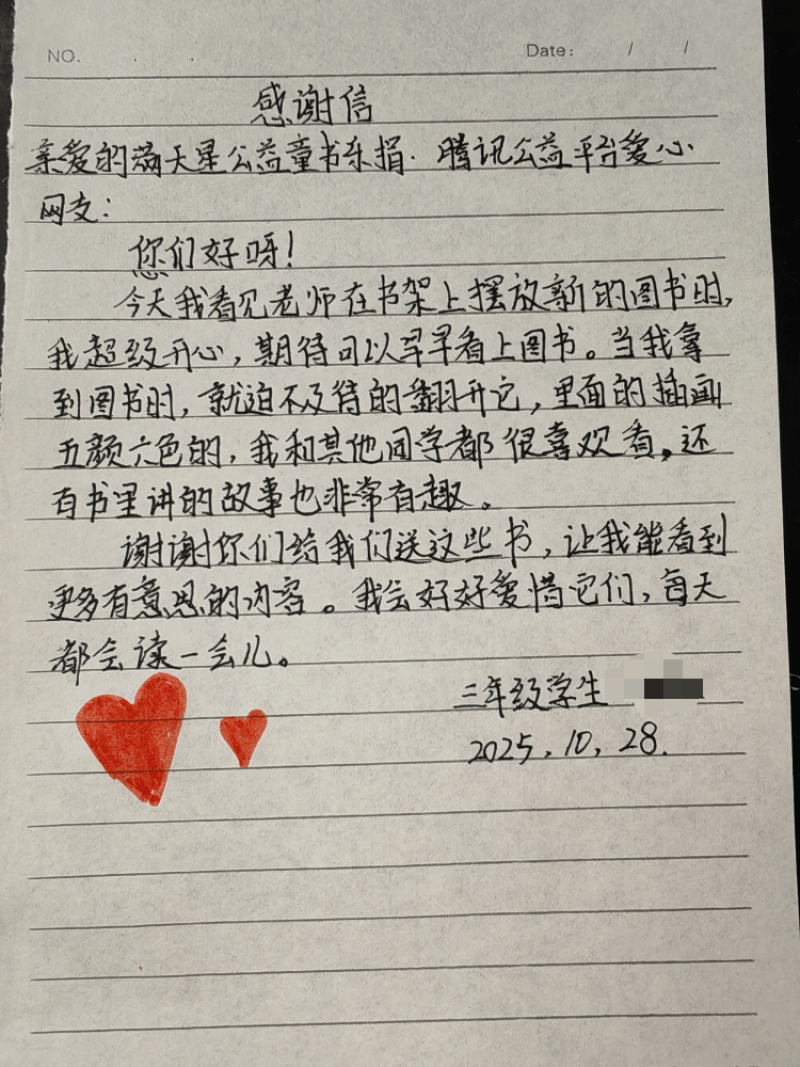 NO.
Date: / /
感谢信
亲爱的满天星公益童书乐捐.腾讯公益平台爱心
网友:
您们好呀!
今天我看见老师在书架上摆放新的图书时,
我超级开心,期待可以早早看上图书。当我拿
到图书时,就迫不及待的翻开它,里面的插画
五颜六色的,我和其他同学都很喜欢看。还
有书里讲的故事也非常有趣。
谢谢你们给我们送这些书,让我能看到
更多有意思的内容。我会好好爱惜它们,每天
都会读一会儿。
三年级学生
2025.10.28.